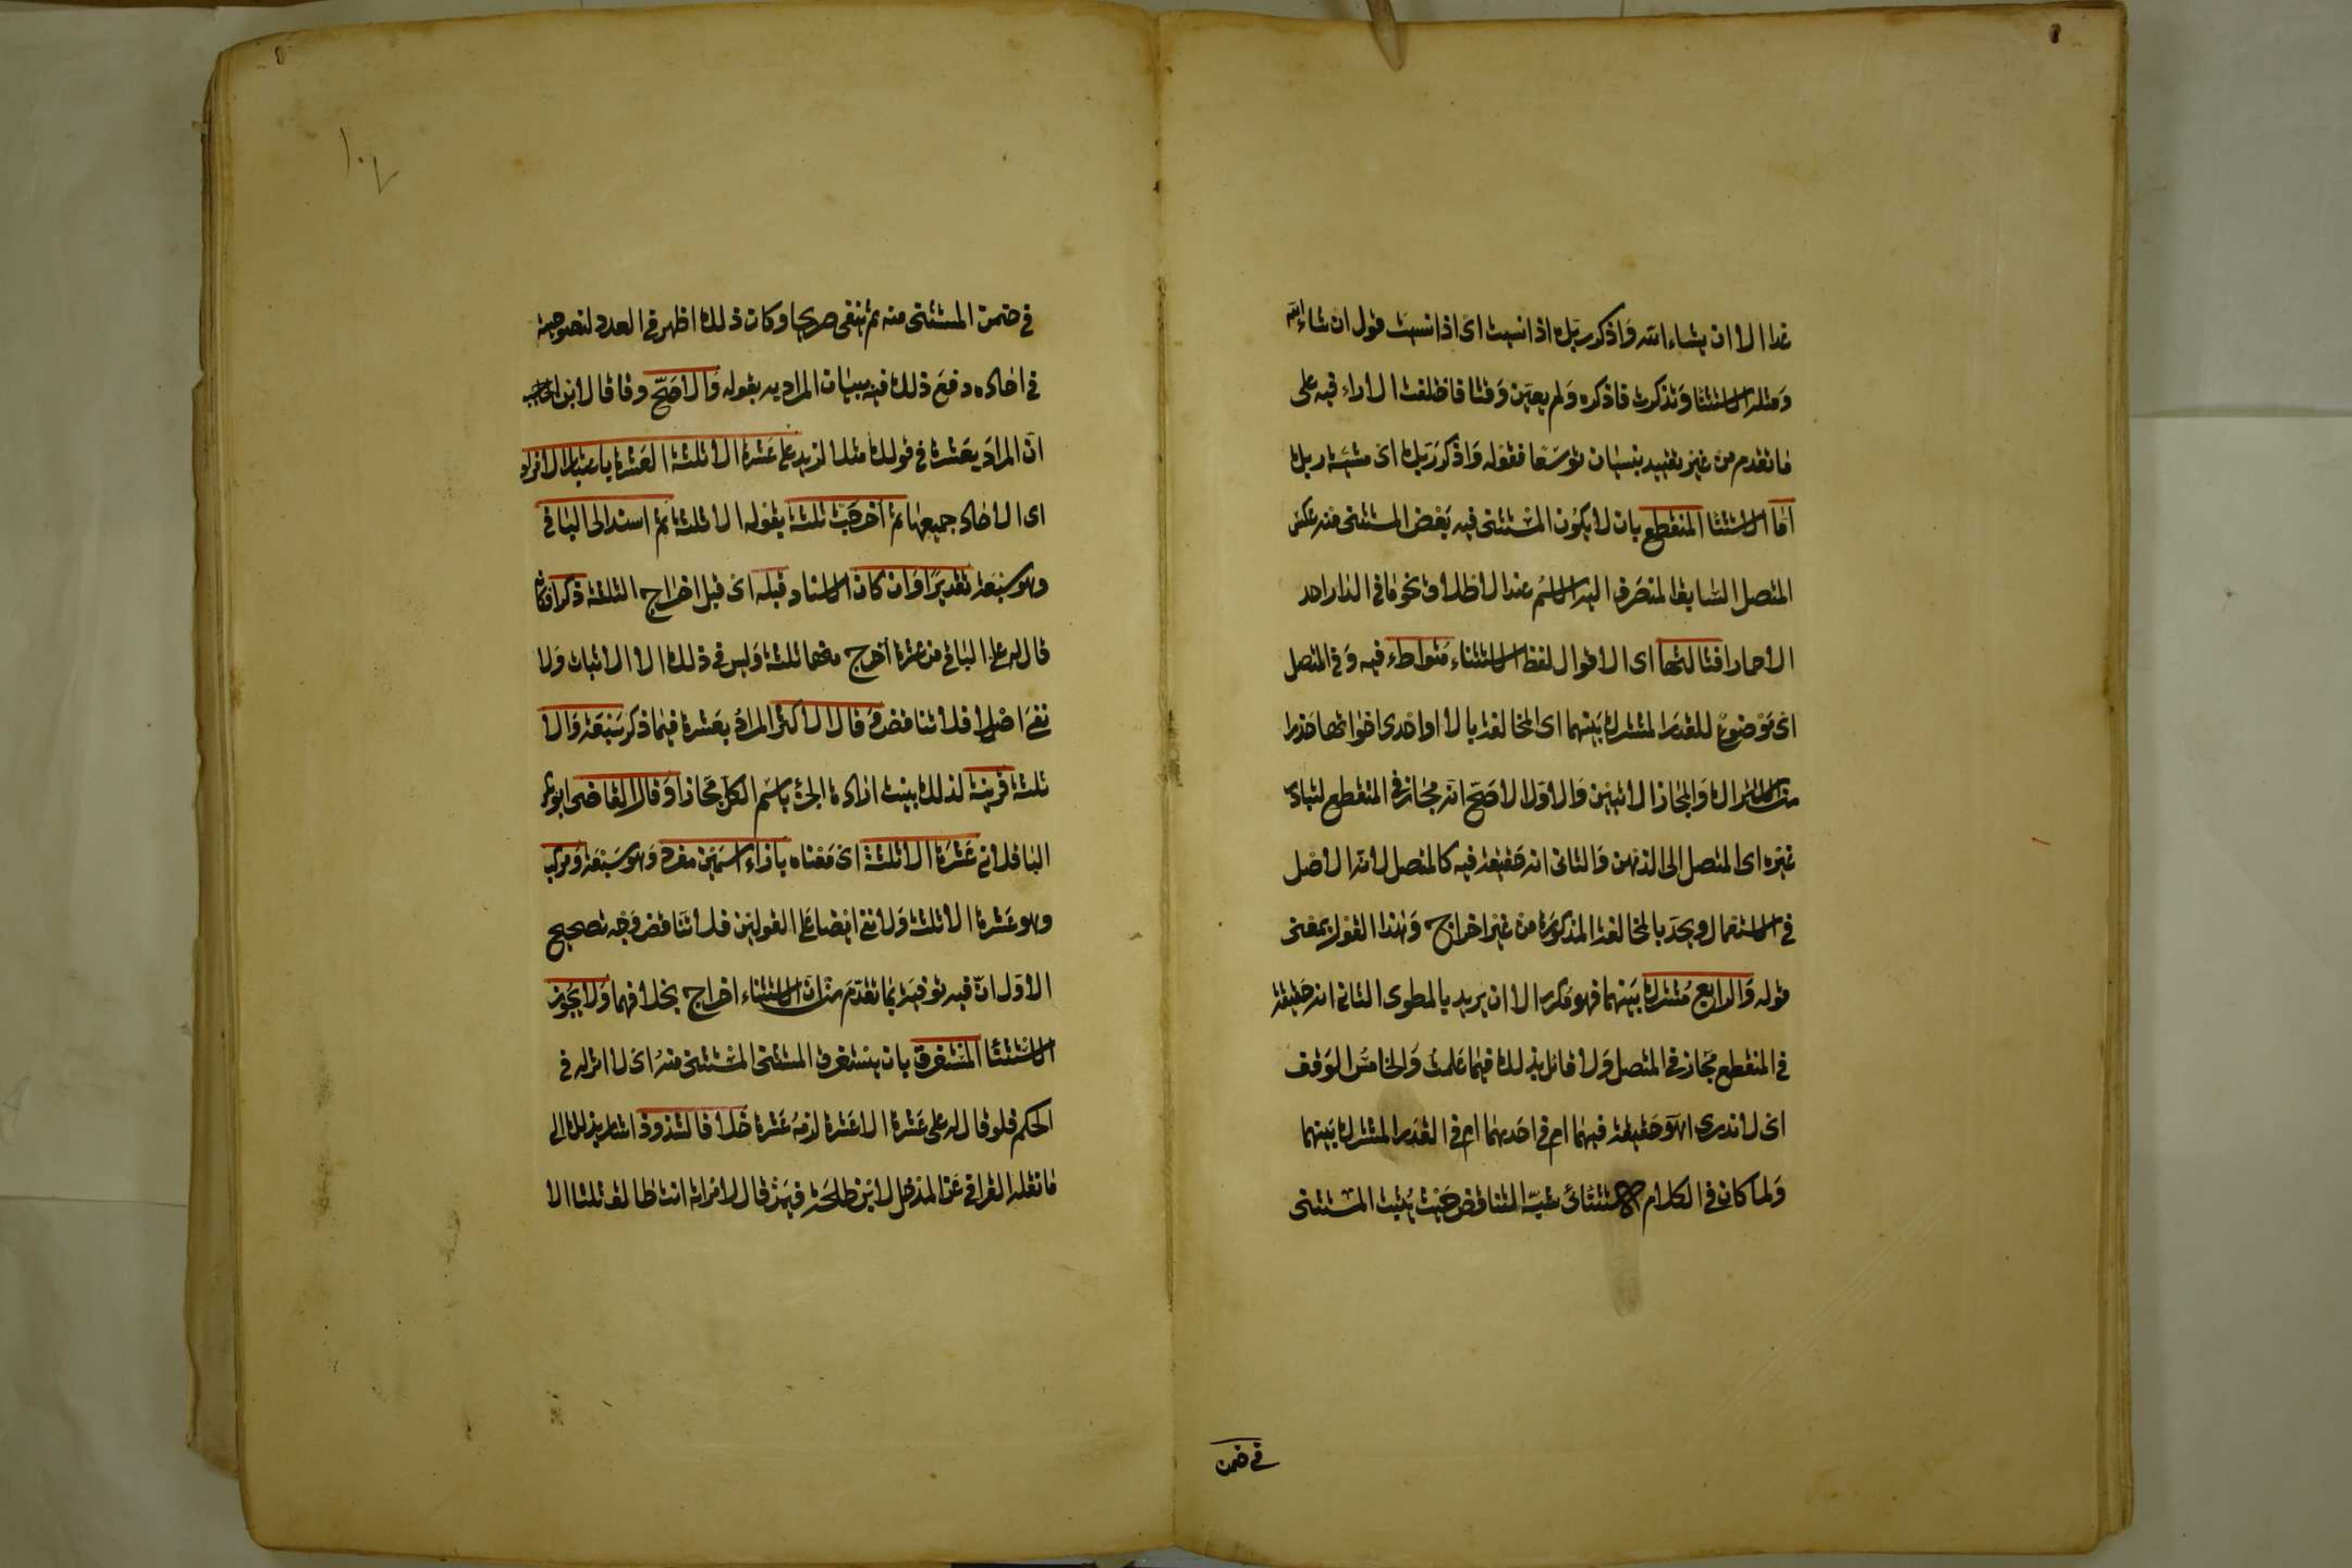 غدا الا ان يشاء الله واذكر ربك اذا نسيت اى اذا نسيت قول ان شاء الله
ومثله الاستثنا وتذكرت فاذكره ولم يعين وقتا فاختلفت الاراء فيه على
ما تقدم من غير تقييد بنسيان توسعا فقوله واذكر ربك اى مشيئة ربك
اما الاستثنا المنقطع بان لا يكون المستثنى فيه بعض المستثنى منه عكس
المتصل السابق المنصرف اليه الاسم عند الاطلاق نحو ما فى الدار احد
الا حمار افثالثها اى الاقوال لفظ الاستثناء متواطء فيه وفى المتصل
اى موضوع للقدر المشترك بينهما اى المخالفة بالا او احدى اخواتها حذرا
من الاشتراك والمجاز الاتيين والاول الاصح انه مجاز فى المنقطع لتبادر
غيره اى المتصل الى الذهن والثانى انه حقيقة فيه كالمتصل لانه الاصل
فى الاستعمال ويحد بالمخالفة المذكورة من غير اخراج وهذا القول بمعنى
قوله والرابع مشترك بينهما فهو مكرر الا ان يريد بالمطوى الثانى انه حقيقة
فى المنقطع مجاز فى المتصل ولا قائل بذلك فيما علمت والخامس الوقف
اى لا ندرى اهو حقيقة فيهما ام فى احدهما ام فى القدر المشترك بينهما
ولما كان فى الكلام الاستثنائى شبه التناقض حيث يثبت المستثنى
فى ضمن
فى ضمن المستثنى منه ثم ينفى صريحا وكان ذلك اظهر فى العدد لنصوصيته
فى احاده دفع ذلك فيه ببيان المراد به بقوله والاصح وفاقا لابن الحاجب
ان المراد بعشرة فى قولك مثلا لزيد على عشرة الا ثلثة العشرة باعتبار الافراد
اى الاحاد جميعها ثم اخرجت ثلثة بقوله الا ثلثة ثم اسند الى الباقى
وهو سبعة تقديرا وان كان الاسناد قبله اى قبل اخراج الثلثة ذكرا فكانه
قال له على الباقى من عشرة اخرج منها ثلثة وليس فى ذلك الا الاثبات ولا
نفى اصلا فلا تناقض وقال الاكثر المراد بعشرة فيما ذكر سبعة والا
ثلثة قرينة لذلك بينت ارادة الجزء باسم الكل مجازا وقال القاضى ابو بكر
الباقلانى عشرة الا ثلثة اى معناه بازاء اسمين مفرد وهو سبعة ومركب
وهو عشرة الا ثلثة ولا نفى ايضا على القولين فلا تناقض ووجه تصحيح
الاول ان فيه توفية بما تقدم من ان الاستثناء اخراج بخلافهما ولا يجوز
الاستثنا المستغرق بان يستغرق المستثنى المستثنى منه اى لا اثر له فى
الحكم فلو قال له على عشرة الا عشرة لزمه عشرة خلافا لشذوذ اشار بذلك الى
ما نقله القرافى عن المدخل لابن طلحة فيمن قال لامراته انت طالق ثلثا الا